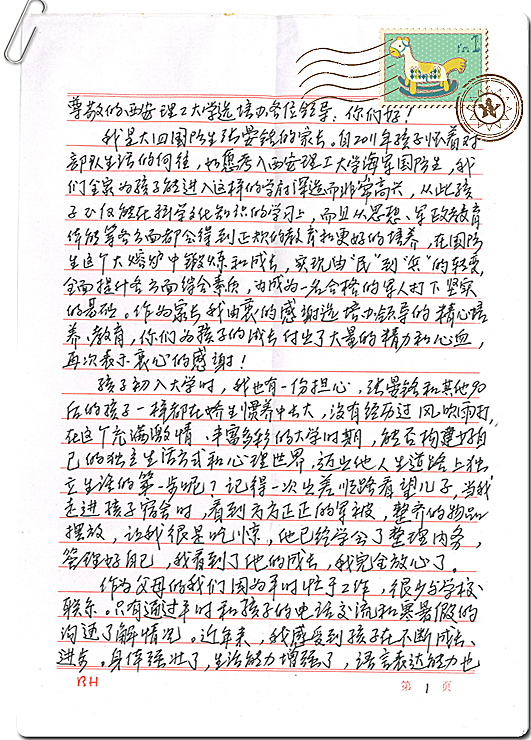 1
尊敬的西安理工大学选培办各位领导:你们好!
我是大四国防生张晏铭的家长。自2011年孩子怀着对
部队生活的向往,如愿考入西安理工大学海军国防生,我
们全家为孩子能进入这样的学府深造而非常高兴,从此孩
子不仅能在科学文化知识的学习上,而且从思想、军政教育
体能等各方面都会得到正规的教育和更好的培养,在国防
生这个大熔炉中锻炼和成长,实现由“民”到“兵”的转变,
全面提升各方面综合素质,为成为一名合格的军人打下坚实
的基础。作为家长我由衷的感谢选培办领导的精心培
养、教育,你们为孩子的成长付出了大量的精力和心血,
再次表示衷心的感谢!
孩子初入大学时,我也有一份担心,张晏铭和其他90
后的孩子一样都在娇生惯养中长大,没有经历过风吹雨打,
在这个充满激情、丰富多彩的大学时期,能否构建好自
己的独立生活方式和心理世界,迈出他人生道路上独
立生活的第一步呢?记得一次出差顺路看望儿子,当我
走进孩子宿舍时,看到方方正正的军被,整齐的物品
摆放,让我很是吃惊,他已经学会了整理内务,
管理好自己,我看到了他的成长,我完全放心了。
作为父母的我们因为平时忙于工作,很少与学校
联系。只有通过平时和孩子的电话交流和寒暑假的
沟通了解情况。近年来,我感受到孩子在不断成长、
进步。身体强壮了,生活能力增强了,语言表达能力也
BH
第 1 页